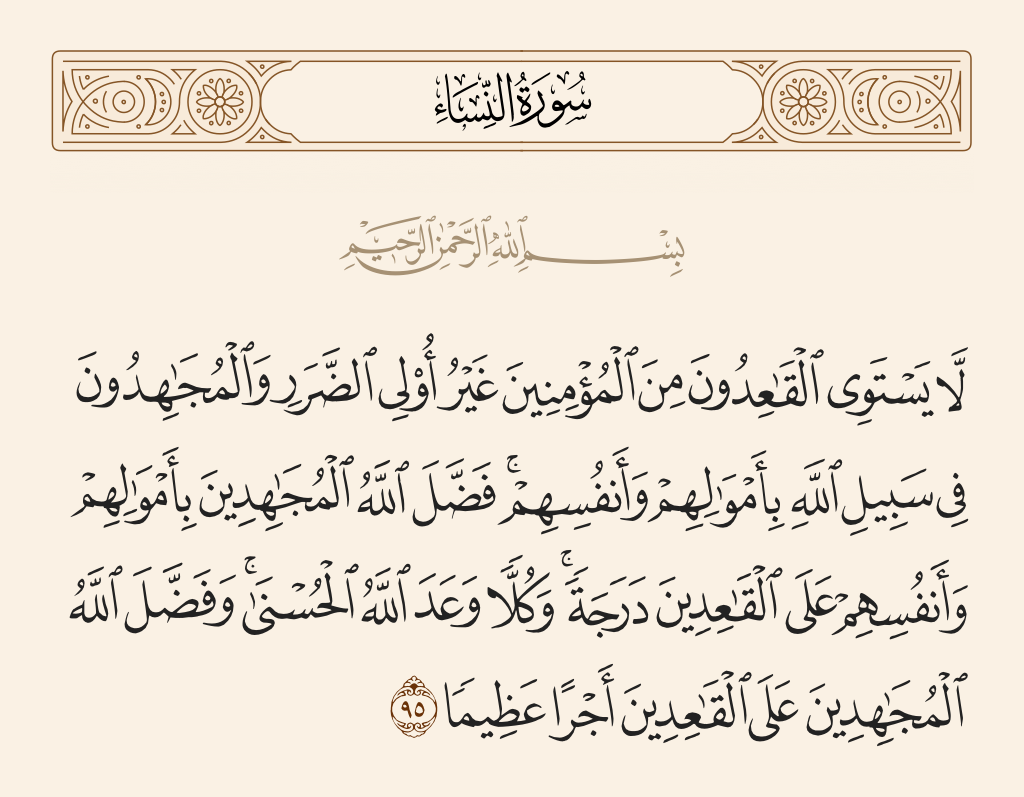 سُورَةُ النِّسَاءِ
بِسْمِ ٱللَّهِ ٱلرَّحْمَٰنِ ٱلرَّحِيمِ
لَّا يَسْتَوِى ٱلْقَـٰعِدُونَ مِنَ ٱلْمُؤْمِنِينَ غَيْرُ أُو۟لِى ٱلضَّرَرِ وَٱلْمُجَـٰهِدُونَ
فِى سَبِيلِ ٱللَّهِ بِأَمْوَٰلِهِمْ وَأَنفُسِهِمْ ۚ فَضَّلَ ٱللَّهُ ٱلْمُجَـٰهِدِينَ بِأَمْوَٰلِهِمْ
وَأَنفُسِهِمْ عَلَى ٱلْقَـٰعِدِينَ دَرَجَةً ۚ وَكُلًّا وَعَدَ ٱللَّهُ ٱلْحُسْنَىٰ ۚ وَفَضَّلَ ٱللَّهُ
ٱلْمُجَـٰهِدِينَ عَلَى ٱلْقَـٰعِدِينَ أَجْرًا عَظِيمًا ٩٥